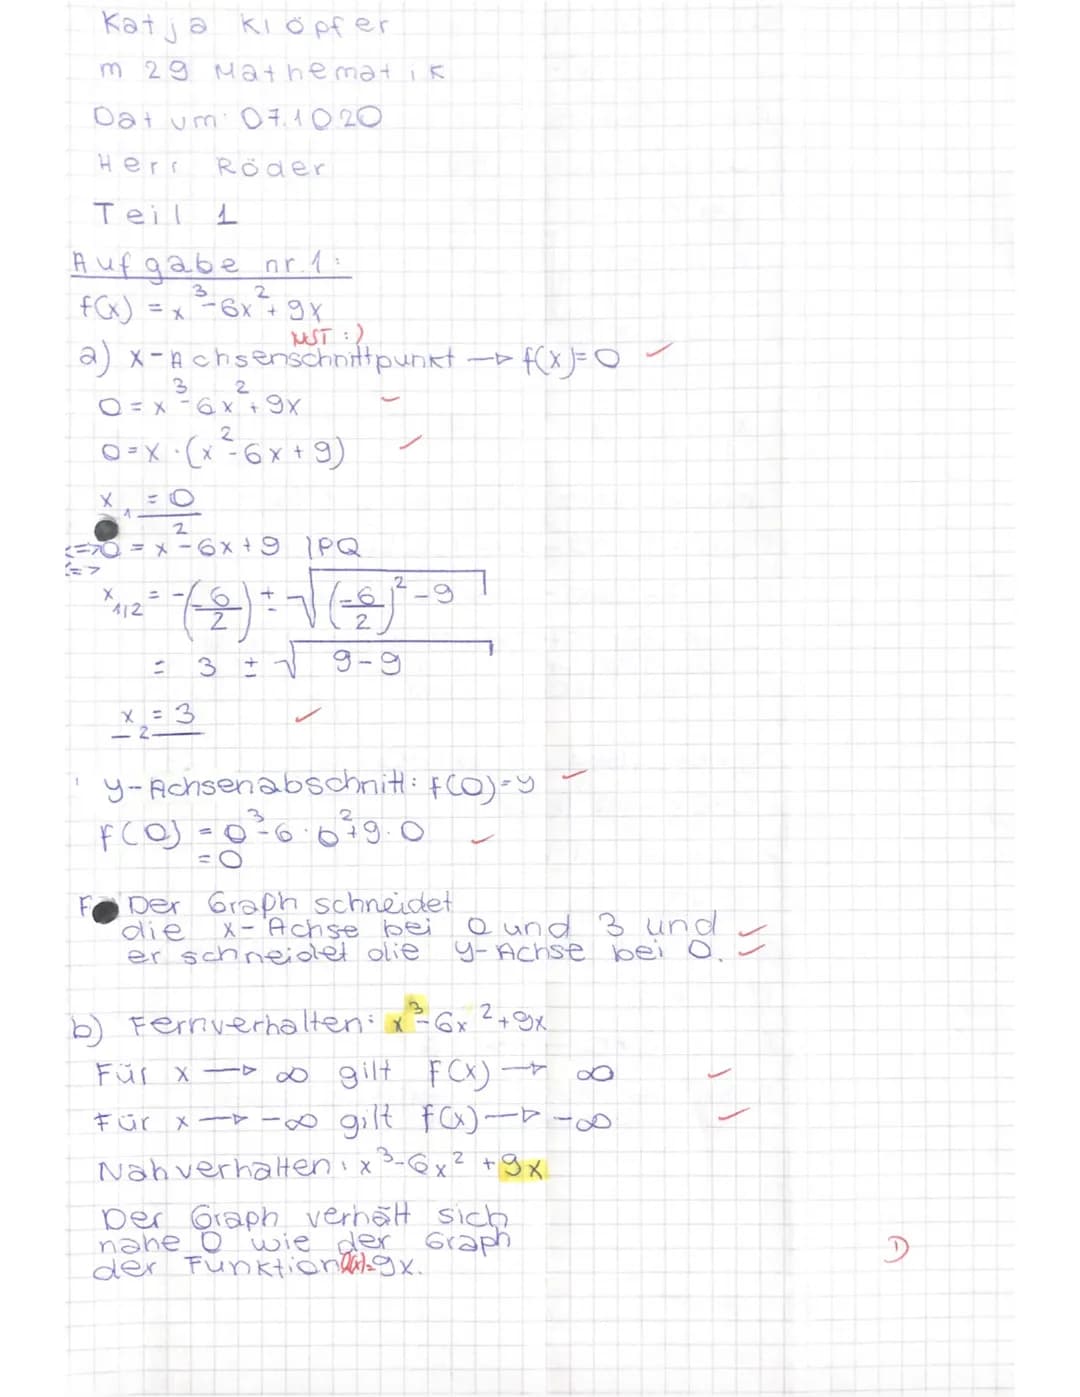 Katja Klöpfer
m 29 Mathematik
Datum: 07.1020
Herr Röder
Teil 1
Aufgabe nr. 1:
f(x) = x³-6x²+9x
NST :)
a) x-Achsenschnittpunkt → f(x)=0 ✓
0 = x³-6x²+9x
0=x·(x²-6x+9) ✓
x₁ = 0
<=>0 = x²-6x+9 |PQ
<=>
x₁/₂ = -(-6/2) ± √((-6/2)²-9)
= 3 ± √(9-9)
x₂ = 3 ✓
y-Achsenabschnitt: f(0)=y
f(0) = 0³-6·0²+9·0 ✓
= 0
Der Graph schneidet
die x-Achse bei 0 und 3 und ✓
er schneidet die y-Achse bei 0. ✓
b) Fernverhalten: x³-6x²+9x
Für x → ∞ gilt f(x) → ∞ ✓
Für x → -∞ gilt f(x) → -∞ ✓
Nahverhalten: x³-6x²+9x
Der Graph verhält sich
nahe 0 wie der Graph
der Funktion 9x.